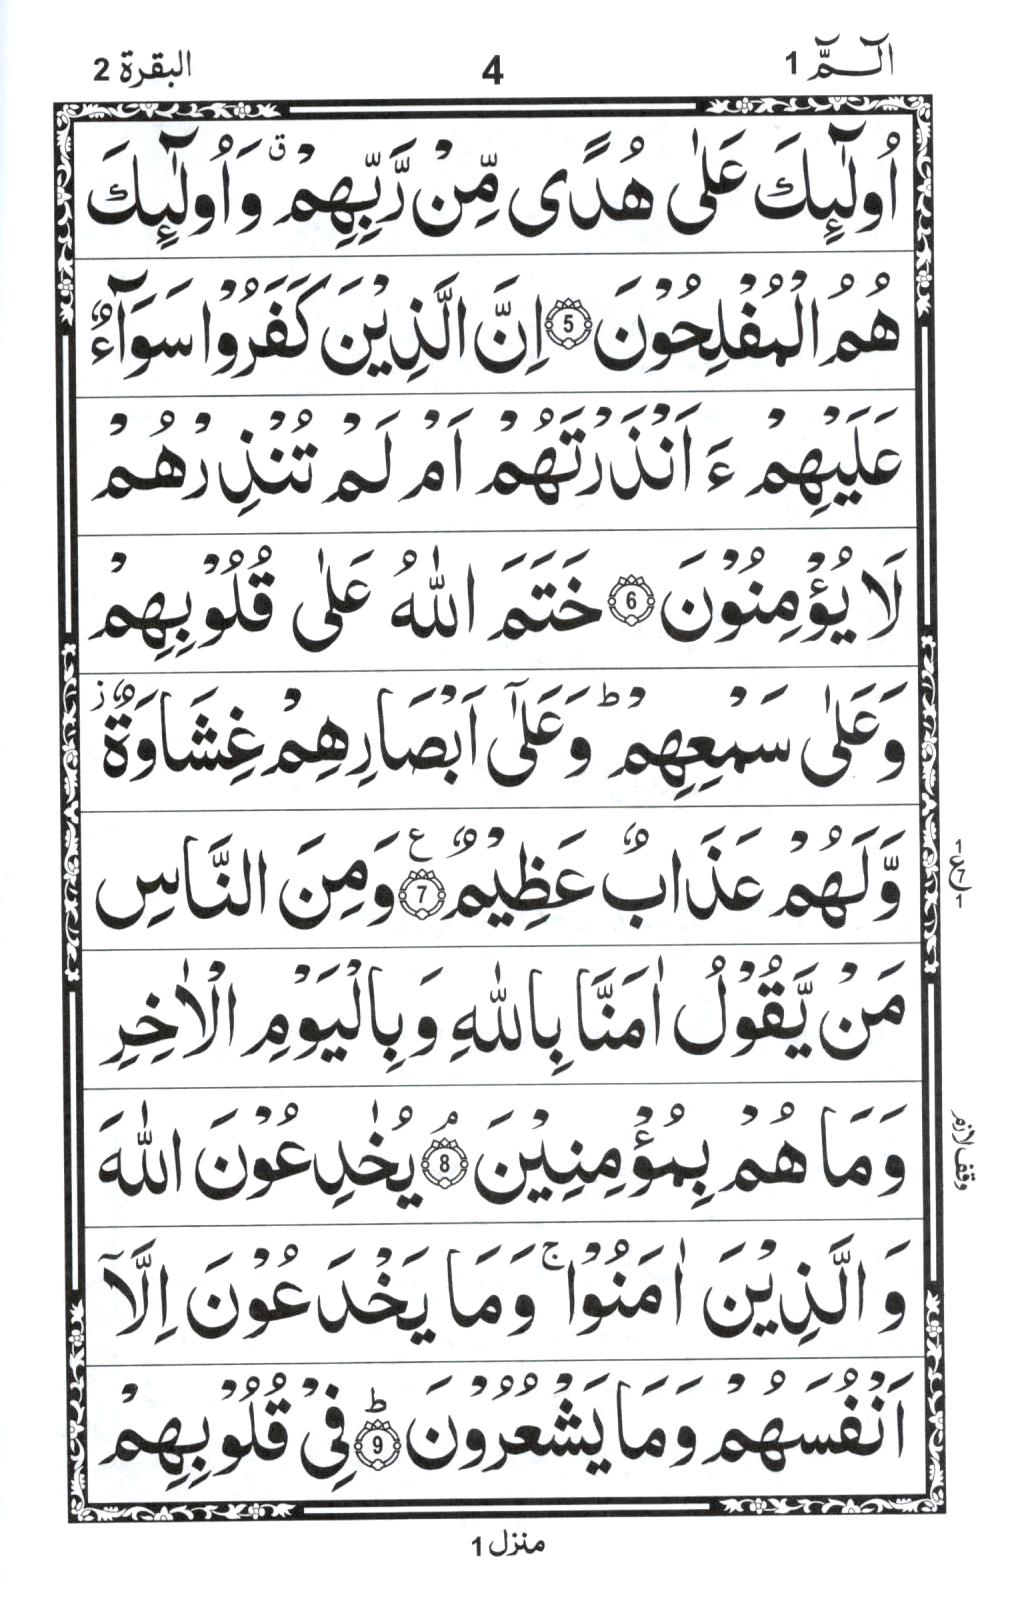 البقرة 2
4
الٓمّٓ 1
اُولٰٓئِكَ عَلٰى هُدًى مِّنْ رَّبِّهِمْ ۗ وَ اُولٰٓئِكَ
هُمُ الْمُفْلِحُوْنَ 5 اِنَّ الَّذِيْنَ كَفَرُوْا سَوَآءٌ
عَلَيْهِمْ ءَ اَنْذَرْتَهُمْ اَمْ لَمْ تُنْذِرْهُمْ
لَا يُؤْمِنُوْنَ 6 خَتَمَ اللّٰهُ عَلٰى قُلُوْبِهِمْ
وَ عَلٰى سَمْعِهِمْ ؕ وَ عَلٰٓى اَبْصَارِهِمْ غِشَاوَةٌ ز
وَّ لَهُمْ عَذَابٌ عَظِيْمٌ 7 ع وَ مِنَ النَّاسِ
1
ع 7
1
مَنْ يَّقُوْلُ اٰمَنَّا بِاللّٰهِ وَ بِالْيَوْمِ الْاٰخِرِ
وَ مَا هُمْ بِمُؤْمِنِيْنَ ۘ 8 يُخٰدِعُوْنَ اللّٰهَ
وقف لازم
وَ الَّذِيْنَ اٰمَنُوْا ۚ وَ مَا يَخْدَعُوْنَ اِلَّآ
اَنْفُسَهُمْ وَ مَا يَشْعُرُوْنَ ؕ 9 فِيْ قُلُوْبِهِمْ
منزل 1